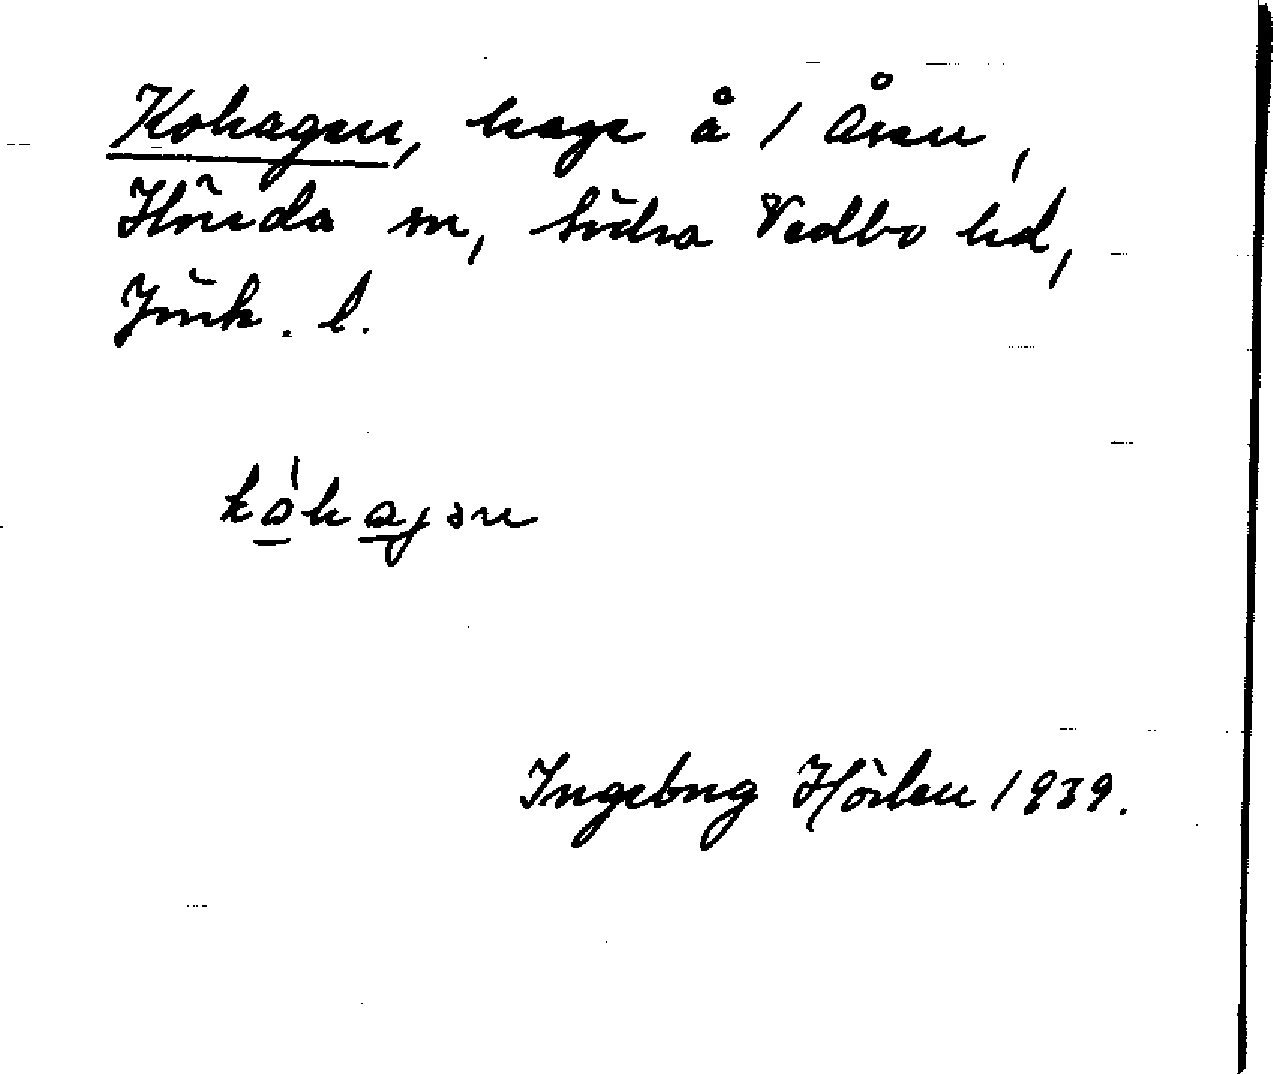 Kohagen, hage å 1 Åsen,
Höreda sn, Södra Vedbo hd,
Jönk. l.
ko̱hajən
Ingeborg Hörlén 1939.